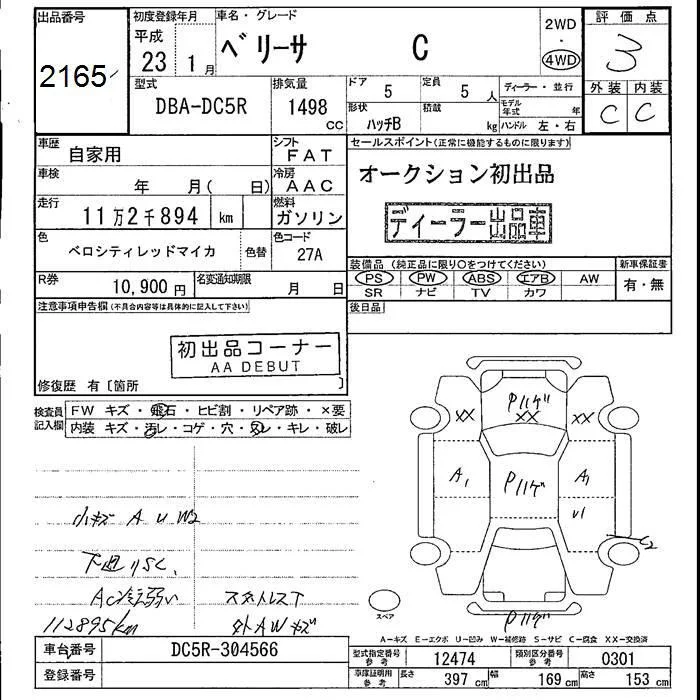 出品番号
2165
初度登録年月
平成
23 1月
車名・グレード
ベリーサ C
2WD
・
4WD
評価点
3
外装 内装
C C
型式
DBA-DC5R
排気量
1498
CC
ドア
5
定員
5人
形状
ハッチB
積載
kg
ディーラー・並行
モデル年式 年
ハンドル 左・右
車歴
自家用
シフト
FAT
車検
年 月( 日)
冷房
AAC
走行
11万2千894 km
燃料
ガソリン
色
ベロシティレッドマイカ
色替
色コード
27A
R券
10,900円
名変通知期限
月 日
セールスポイント(正常に機能するものに限ります)
オークション初出品
ディーラー出品車
装備品 (純正品に限り〇をつけてください)
PS PW ABS エアB AW
SR ナビ TV カワ
新車保証書
有・無
後日品
注意事項申告欄(不具合内容等は具体的に記入して下さい)
初出品コーナー
AA DEBUT
修復歴 有〔箇所 〕
検査員
記入欄
FW キズ・飛石・ヒビ割・リペア跡・×要
内装 キズ・汚レ・コゲ・穴・スレ・キレ・破レ
小キズ A U W2
下廻りSC.
AC冷え弱い
スタットレスT
112895km
外AWキズ
XX
Pハゲ
XX
XX
A1
Pハゲ
A1
U1
C2
Pハゲ
スペア
A-キズ E-エクボ U-凹み W-補修跡 S-サビ C-腐食 XX-交換済
車台番号
DC5R-304566
登録番号
型式指定番号
参考
12474
類別区分番号
参考
0301
車庫証明用
参考
長さ
397 cm
幅
169 cm
高さ
153 cm